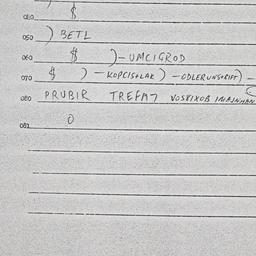 040 $
050 ) BETL
060 $ ) - UMCIGROD
070 $ ) - KOPCISOLAK ) - ODLERUNSCRIFT ) -
080 PRUBIR TREFA7 VOSKIXOB
081 0